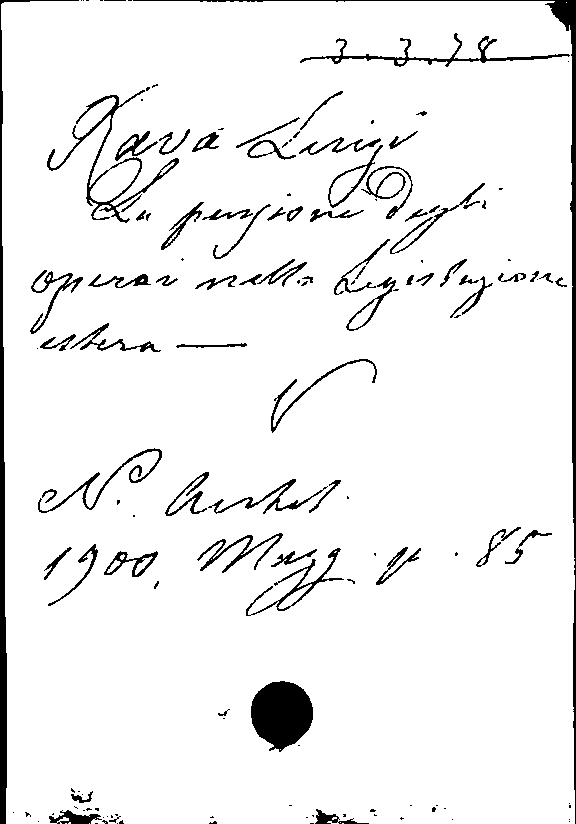 3.3.78
Rava Luigi
La pensione degli
operai nella Legislazione
estera —
N. Antol.
1900, Magg. p. 85